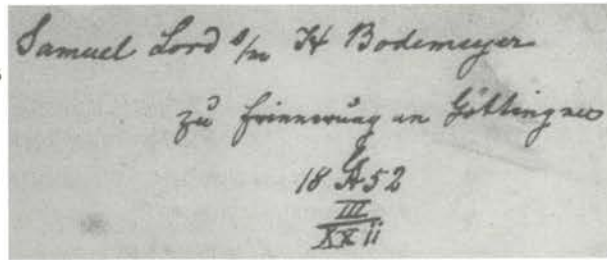 Samuel Lord s/m H Bodemeyer
zu Erinnerung an Göttingen
18 52
III
XXii